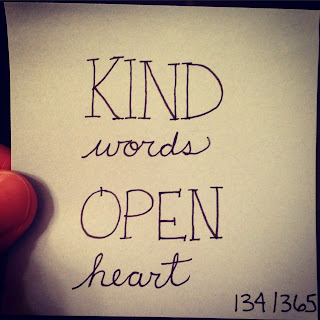 KIND
words
OPEN
heart
134/365